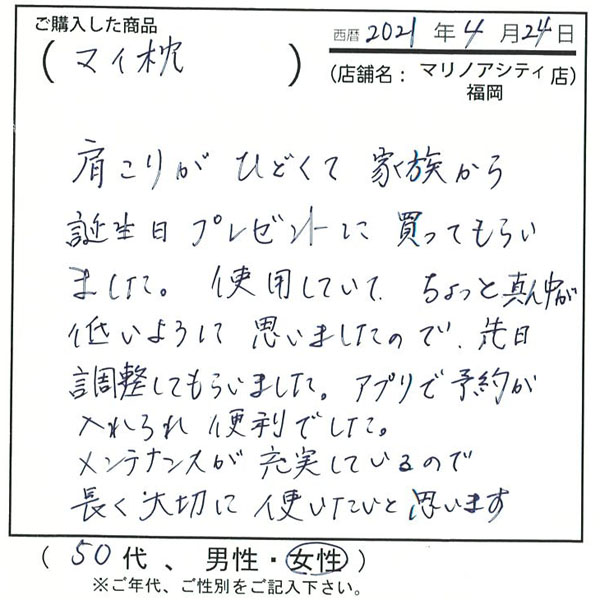 ご購入した商品
(マイ枕)
西暦 2021 年 4 月 24 日
(店舗名: マリノアシティ福岡 店)
肩こりが ひどくて 家族から
誕生日 プレゼントに 買ってもらい
ました。 使用していて、ちょっと真ん中が
低いように 思いましたので、先日
調整してもらいました。アプリで予約が
入れられ 便利でした。
メンテナンスが 充実しているので
長く大切に 使いたいと思います
(50代、男性・女性)
※ご年代、ご性別をご記入下さい。